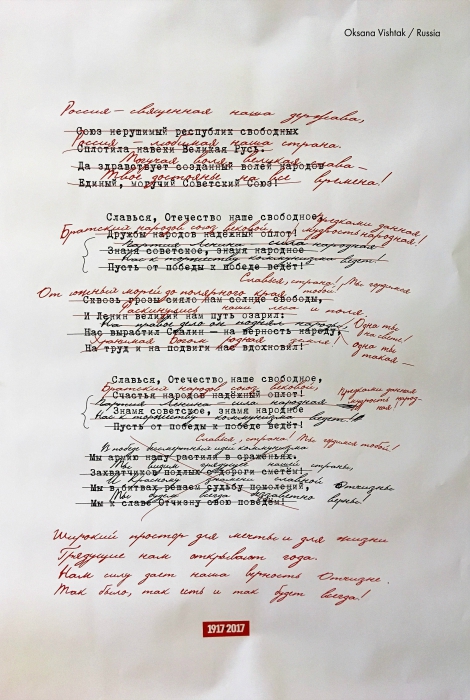 Oksana Vishtak / Russia
Россия – священная наша держава,
Союз нерушимый республик свободных
Россия – любимая наша страна.
Сплотила навеки Великая Русь.
Могучая воля, великая слава –
Да здравствует созданный волей народов
Твоё достоянье на все времена!
Единый, могучий Советский Союз!
Славься, Отечество наше свободное,
Братский народов союз вековой, Предками данная
Дружбы народов надёжный оплот! мудрость народная!
Партия Ленина – сила народная
Знамя советское, знамя народное
Нас к торжеству коммунизма ведёт!
Пусть от победы к победе ведёт!
Славься, страна! Мы гордимся тобой!
От южных морей до полярного края
Сквозь грозы сияло нам солнце свободы,
Раскинулись наши леса и поля.
И Ленин великий нам путь озарил:
На правое дело он поднял народы, Одна ты на свете!
Нас вырастил Сталин – на верность народу,
Хранимая Богом родная земля! Одна ты такая –
На труд и на подвиги нас вдохновил!
Славься, Отечество наше свободное,
Братский народов союз вековой, Предками данная
Счастья народов надёжный оплот! мудрость народная!
Партия Ленина – сила народная
Знамя советское, знамя народное
Нас к торжеству коммунизма ведёт!
Пусть от победы к победе ведёт!
Славься, страна! Мы гордимся тобой!
В победе бессмертных идей коммунизма
Мы армию нашу растили в сраженьях.
Мы видим грядущее нашей страны,
Захватчиков подлых с дороги сметём!
И Красному знамени славной Отчизны
Мы в битвах решаем судьбу поколений,
Мы будем всегда беззаветно верны!
Мы к славе Отчизну свою поведём!
Широкий простор для мечты и для жизни
Грядущие нам открывают года.
Нам силу дает наша верность Отчизне.
Так было, так есть и так будет всегда!
1917 2017